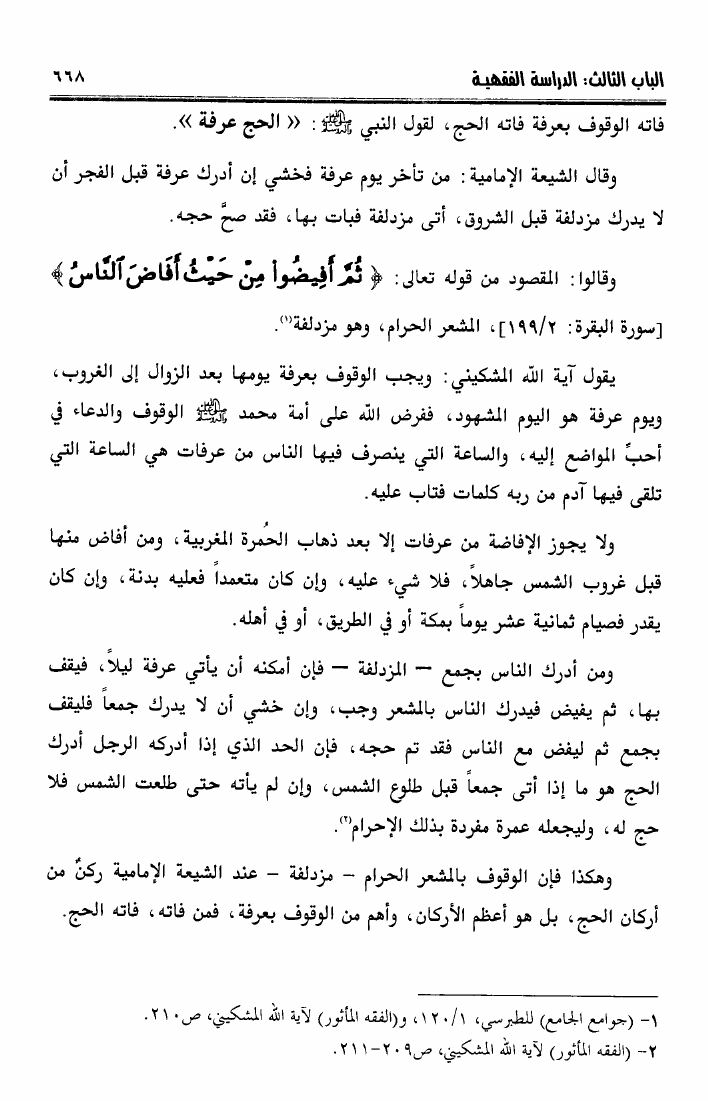 الباب الثالث: الدراسة الفقهية ٦٦٨
فاته الوقوف بعرفة فاته الحج، لقول النبي ﷺ: «الحج عرفة».
وقال الشيعة الإمامية: من تأخر يوم عرفة فخشي إن أدرك عرفة قبل الفجر أن
لا يدرك مزدلفة قبل الشروق، أتى مزدلفة فبات بها، فقد صحَّ حجه.
وقالوا: المقصود من قوله تعالى: ﴿ثُمَّ أَفِيضُوا۟ مِنْ حَيْثُ أَفَاضَ ٱلنَّاسُ﴾
[سورة البقرة: ١٩٩/٢]، المشعر الحرام، وهو مزدلفة(١).
يقول آية الله المشكيني: ويجب الوقوف بعرفة يومها بعد الزوال إلى الغروب،
ويوم عرفة هو اليوم المشهود، ففرض الله على أمة محمد ﷺ الوقوف والدعاء في
أحبِّ المواضع إليه، والساعة التي ينصرف فيها الناس من عرفات هي الساعة التي
تلقى فيها آدم من ربه كلمات فتاب عليه.
ولا يجوز الإفاضة من عرفات إلا بعد ذهاب الحُمرة المغربية، ومن أفاض منها
قبل غروب الشمس جاهلاً، فلا شيء عليه، وإن كان متعمداً فعليه بدنة، وإن كان
يقدر فصيام ثمانية عشر يوماً بمكة أو في الطريق، أو في أهله.
ومن أدرك الناس بجمع – المزدلفة – فإن أمكنه أن يأتي عرفة ليلاً، فيقف
بها، ثم يفيض فيدرك الناس بالمشعر وجب، وإن خشي أن لا يدرك جمعاً فليقف
بجمع ثم ليفض مع الناس فقد تم حجه، فإن الحد الذي إذا أدركه الرجل أدرك
الحج هو ما إذا أتى جمعاً قبل طلوع الشمس، وإن لم يأته حتى طلعت الشمس فلا
حج له، وليجعله عمرة مفردة بذلك الإحرام(٢).
وهكذا فإن الوقوف بالمشعر الحرام – مزدلفة – عند الشيعة الإمامية ركنٌ من
أركان الحج، بل هو أعظم الأركان، وأهم من الوقوف بعرفة، فمن فاته، فاته الحج.
١- (جوامع الجامع) للطبرسي، ١٢٠/١، و(الفقه المأثور) لآية الله المشكيني، ص٢١٠.
٢- (الفقه المأثور) لآية الله المشكيني، ص٢٠٩-٢١١.